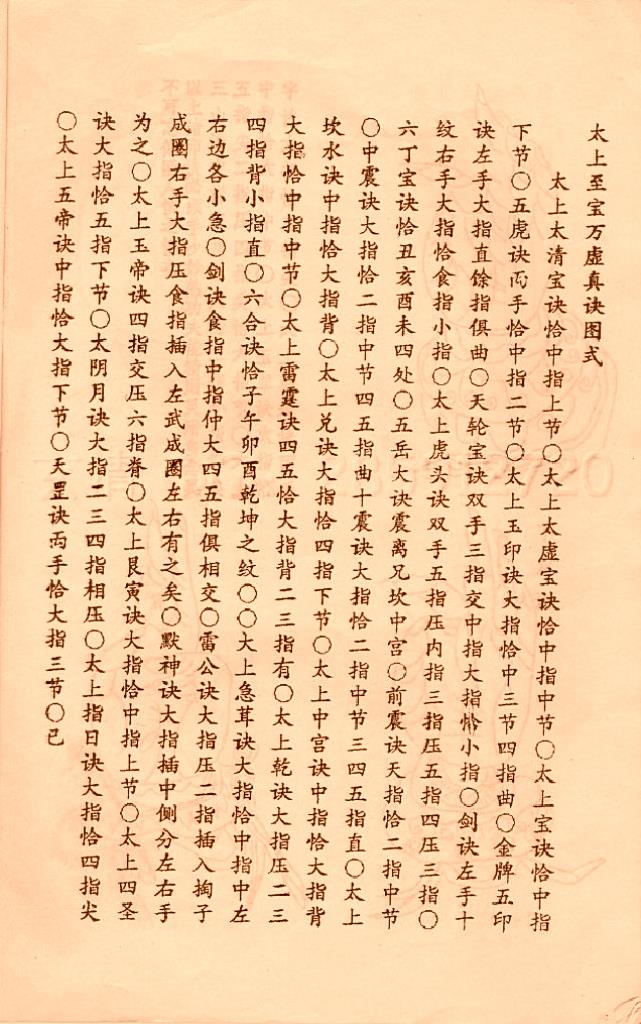 太上至宝万虚真诀图式
太上太清宝诀恰中指上节〇太上太虚宝诀恰中指中节〇太上宝诀恰中指
下节〇五虎诀两手恰中指二节〇太上玉印诀大指恰中三节四指曲〇金牌五印
诀左手大指直馀指俱曲〇天轮宝诀双手三指交中指大指恰小指〇剑诀左手十
纹右手大指恰食指小指〇太上虎头诀双手五指压内指三指压五指四压三指〇
六丁宝诀恰丑亥酉未四处〇五岳大诀震离兄坎中宫〇前震诀天指恰二指中节
〇中震诀大指恰二指中节四五指曲十震诀大指恰二指中节三四五指直〇太上
坎水诀中指恰大指背〇太上兑诀大指恰四指下节〇太上中宫诀中指恰大指背
大指恰中指中节〇太上雷霆诀四五恰大指背二三指有〇太上乾诀大指压二三
四指背小指直〇六合诀恰子午卯酉乾坤之纹〇〇大上急茸诀大指恰中指中左
右边各小急〇剑诀食指中指仲大四五指俱相交〇雷公诀大指压二指插入掏子
成圈右手大指压食指插入左武成圈左右有之矣〇默神诀大指插中侧分左右手
为之〇太上玉帝诀四指交压六指脊〇太上艮寅诀大指恰中指上节〇太上四圣
诀大指恰五指下节〇太阴月诀大指二三四指相压〇太上指日诀大指恰四指尖
〇太上五帝诀中指恰大指下节〇天罡诀两手恰大指三节〇已